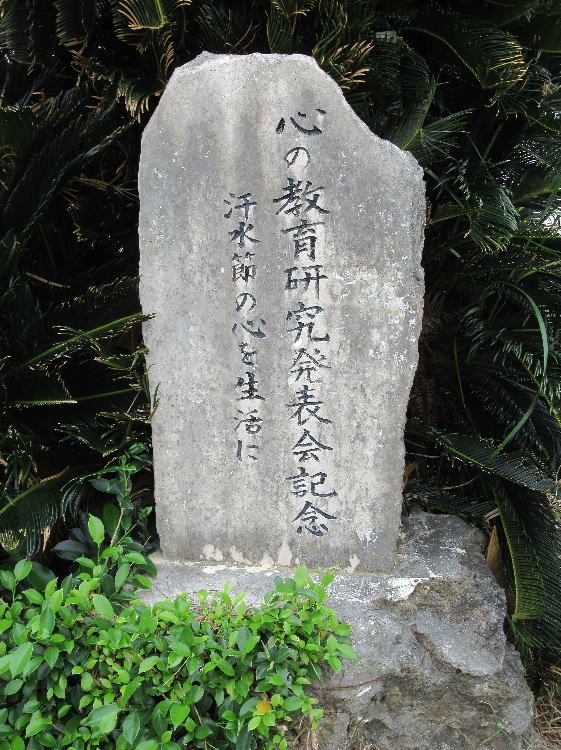 心の教育研究発表会記念
汗水節の心を生活に